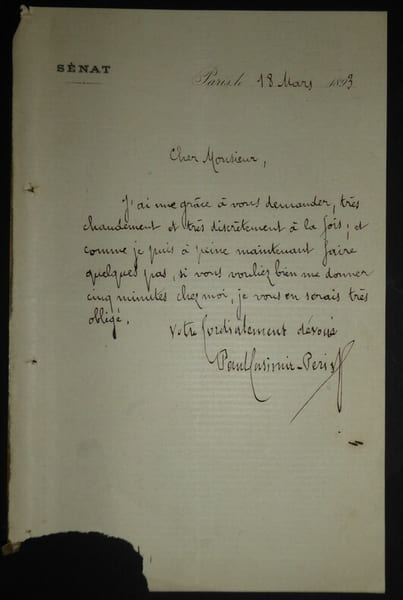 SÉNAT
Paris, le 18 Mars 1893
Cher Monsieur,
J'ai une grâce à vous demander, très
chaudement et très discrètement à la fois; et
comme je puis à peine maintenant faire
quelques pas, si vous vouliez bien me donner
cinq minutes chez moi, je vous en serais très
obligé.
Votre Cordialement dévoué
Paul Casimir-Perier